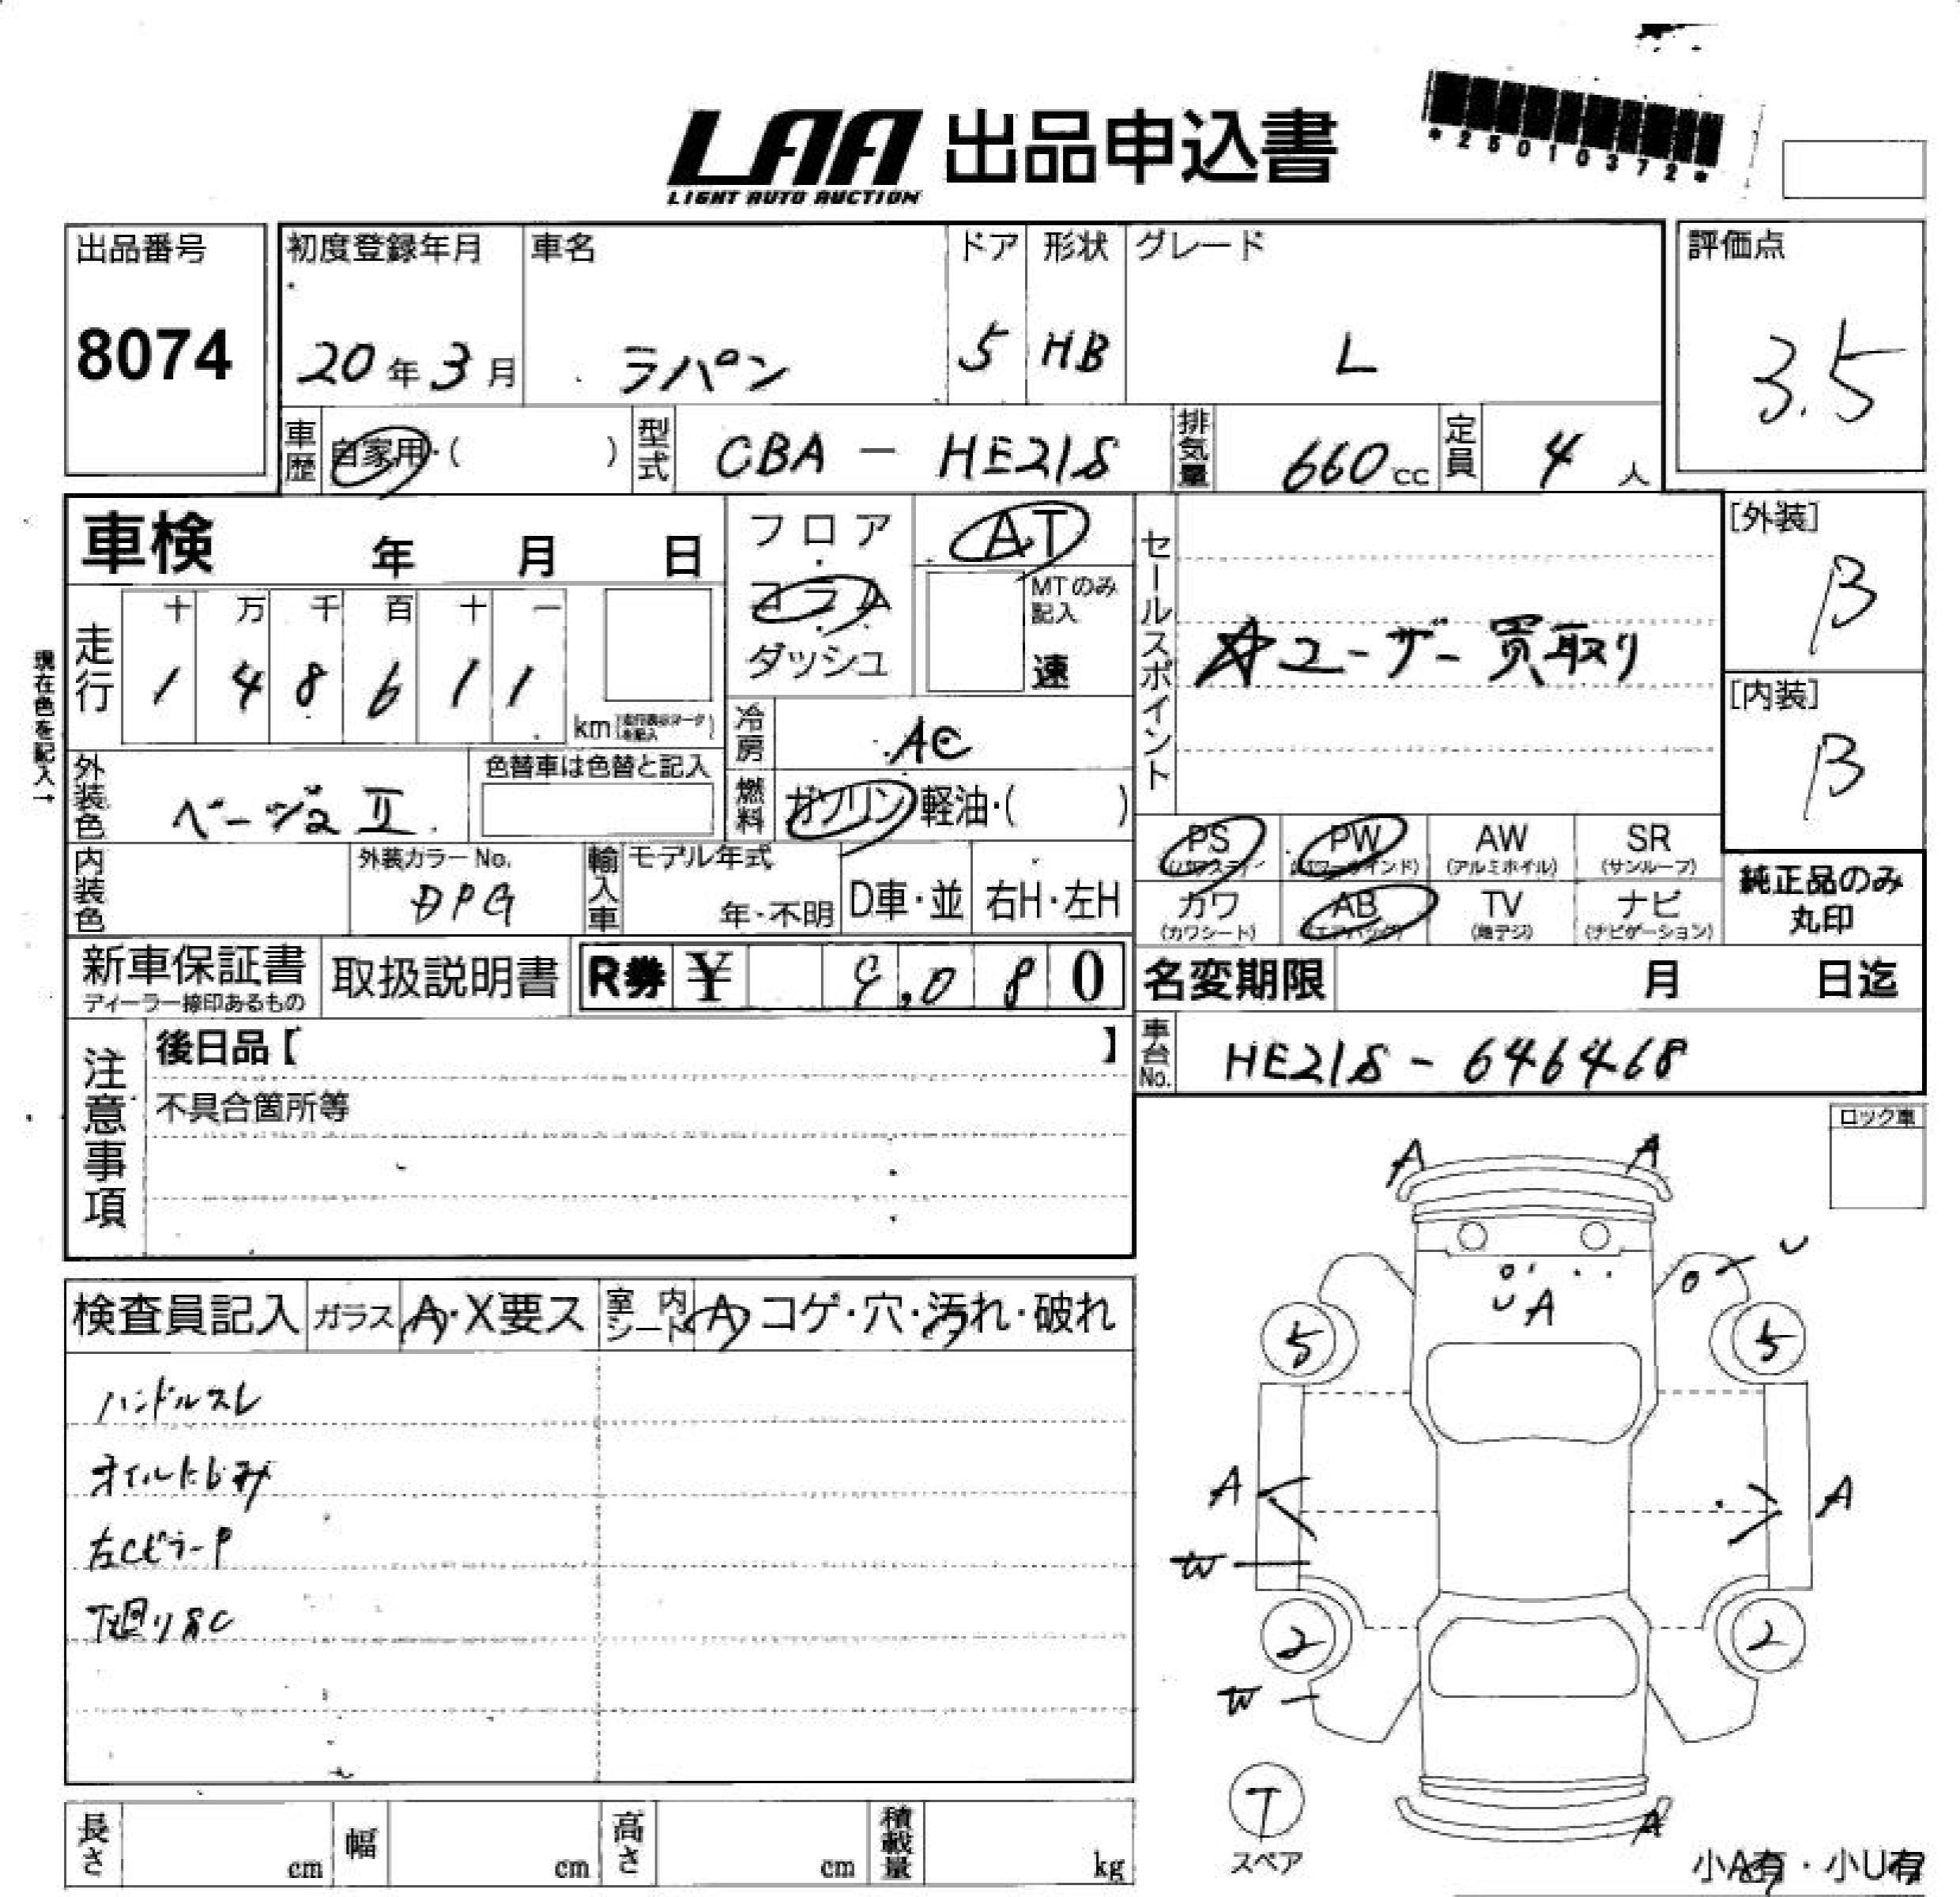 LAA 出品申込書
LIGHT AUTO AUCTION
*25010372*
出品番号
8074
初度登録年月
20年3月
車名
ラパン
ドア
5
形状
HB
グレード
L
評価点
3.5
車歴
自家用・( )
型式
CBA - HE21S
排気量
660cc
定員
4人
車検 年 月 日
現在色を記入→
走行
十 万 千 百 十 一
1 4 8 6 1 1
km
フロア
コラム
ダッシュ
AT
MTのみ
記入
速
冷房
AC
燃料
ガソリン 軽油・( )
セールスポイント
☆ユーザー買取り
[外装]
B
[内装]
B
外装色
ベージュ Ⅱ
色替車は色替と記入
内装色
外装カラーNo.
DPG
輸入車
モデル年式
年・不明
D車・並
右H・左H
PS
(パワステ)
PW
(パワーウインド)
AW
(アルミホイル)
SR
(サンルーフ)
カワ
(カワシート)
AB
(エアバッグ)
TV
(地デジ)
ナビ
(ナビゲーション)
純正品のみ
丸印
新車保証書
ディーラー捺印あるもの
取扱説明書
R券 ¥ 9,080
名変期限 月 日迄
車台No.
HE21S - 646468
注意事項
後日品【 】
不具合箇所等
ロック車
検査員記入
ガラス
A・X要ス
室内シート
A コゲ・穴・汚れ・破れ
ハンドルスレ
オイルにじみ
左CピラーP
下廻りSC
A A
U
U A
5 5
A A
W
2 2
W
T
スペア
A
小A有・小U有
長さ cm
幅 cm
高さ cm
積載量 kg